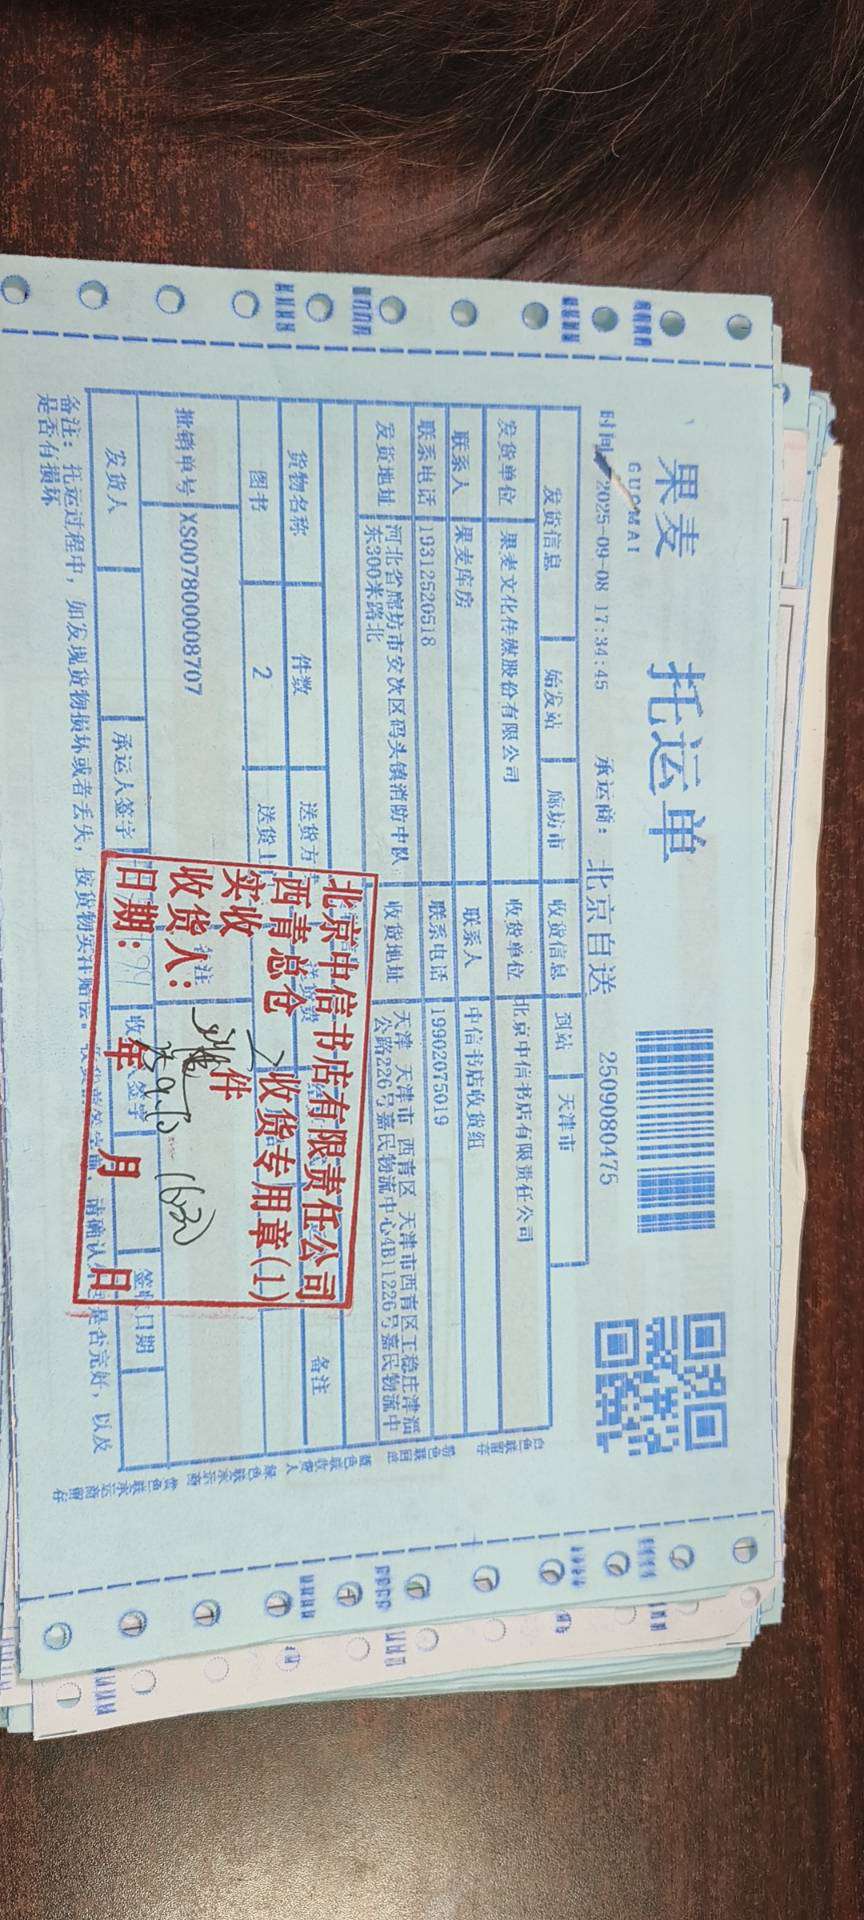 果麦 托运单
GUOMAI
时间: 2025-09-08 17:34:45 承运商: 北京自送 2509080475
发货信息 始发站 廊坊市 收货信息 到站 天津市
发货单位 果麦文化传媒股份有限公司 收货单位 北京中信书店有限责任公司
联系人 果麦库房 联系人 中信书店收货组
联系电话 19312520518 联系电话 19902075019
发货地址 河北省廊坊市安次区码头镇消防中队东300米路北 收货地址 天津 天津市 西青区 天津市西青区王稳庄津淄公路226号嘉民物流中心4B11226号嘉民物流中
货物名称 件数 送货方 备注
图书 2 送货上
批销单号 XS007800008707 备注
发货人 承运人签字 收 人签字 签收日期
备注: 托运过程中, 如发现货物损坏或者丢失, 按货物实价赔偿。 请确认 是否完好, 以及
是否有损坏
白色联留存
粉色联回途
蓝色联收货人
绿色联承运商
黄色联承运商留存
北京中信书店有限责任公司
西青总仓 收货专用章(1)
实收 件
收货人:
日期: 年 月 日